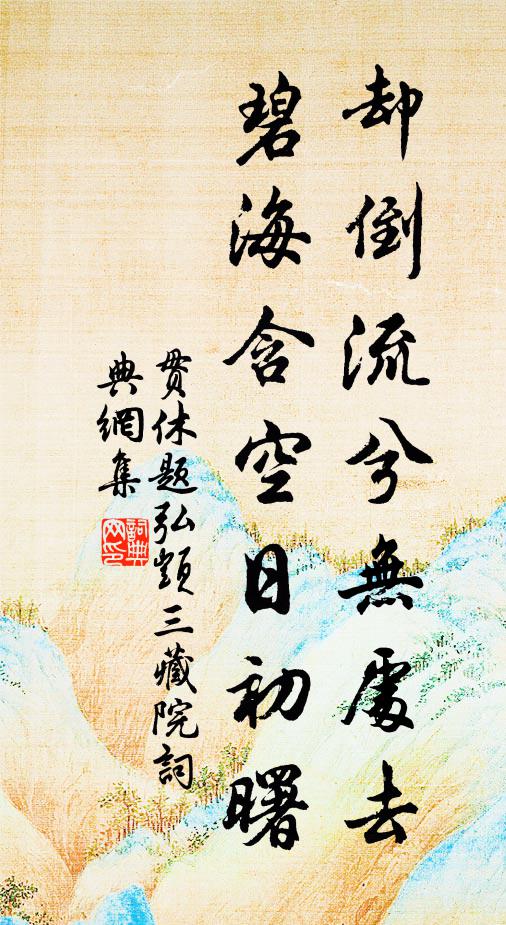 却倒流兮無處去
碧海含空日初曙
貫休題弘顗三藏院詞
典網集
詞典
网印